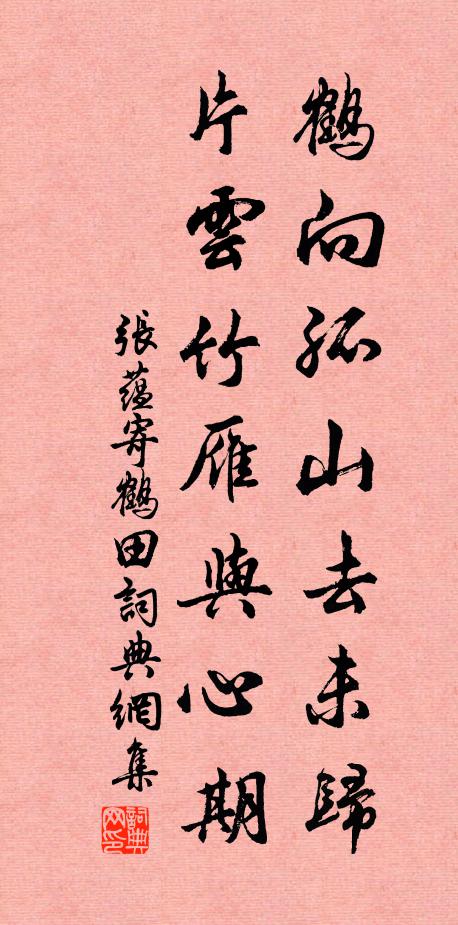 鶴向孤山去未歸
片雲竹雁與心期
張蘊寄鶴田詞典網集
詞典网印